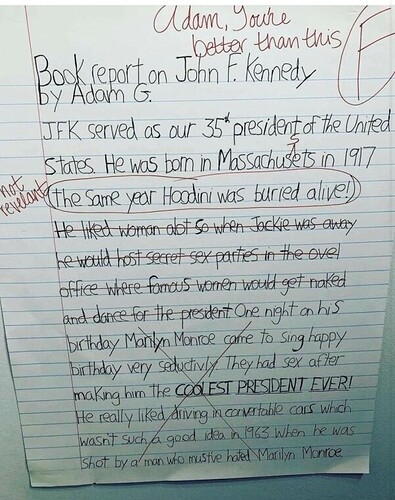 Adam, You're
better than this
F
Book report on John F. Kennedy
by Adam G.
JFK served as our 35st president of the United
States. He was born in Massachusets in 1917
not
revelant
(the same year Hoodini was buried alive!)
He liked woman alot so when Jackie was away
he would host secret sex parties in the ovel
office where famous women would get naked
and dance for the president One night on his
birthday Marilyn Monroe came to sing happy
birthday very seductivly. They had sex after
making him the COOLEST PRESIDENT EVER!
He really liked driving in convertable cars which
wasn't such a good idea in 1963 when he was
shot by a man who must've hated Marilyn Monroe